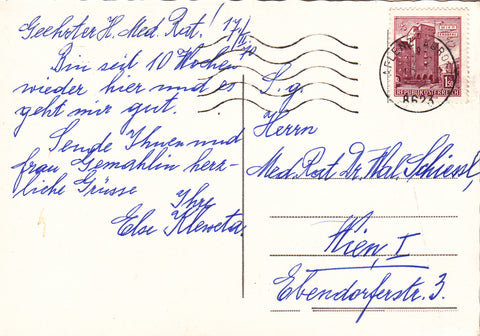 Geehrter H. Med. Rat! 17/II 70
Bin seit 10 Wochen
wieder hier und es
geht mir gut.
Sende Ihnen und
frau Gemahlin herz-
liche Grüsse
Ihre
Else
S. g.
Herrn
Med. Rat Dr. Wal. Schiessl,
Wien, I
Ebendorferstr. 3.
REPUBLIK ÖSTERREICH
8623